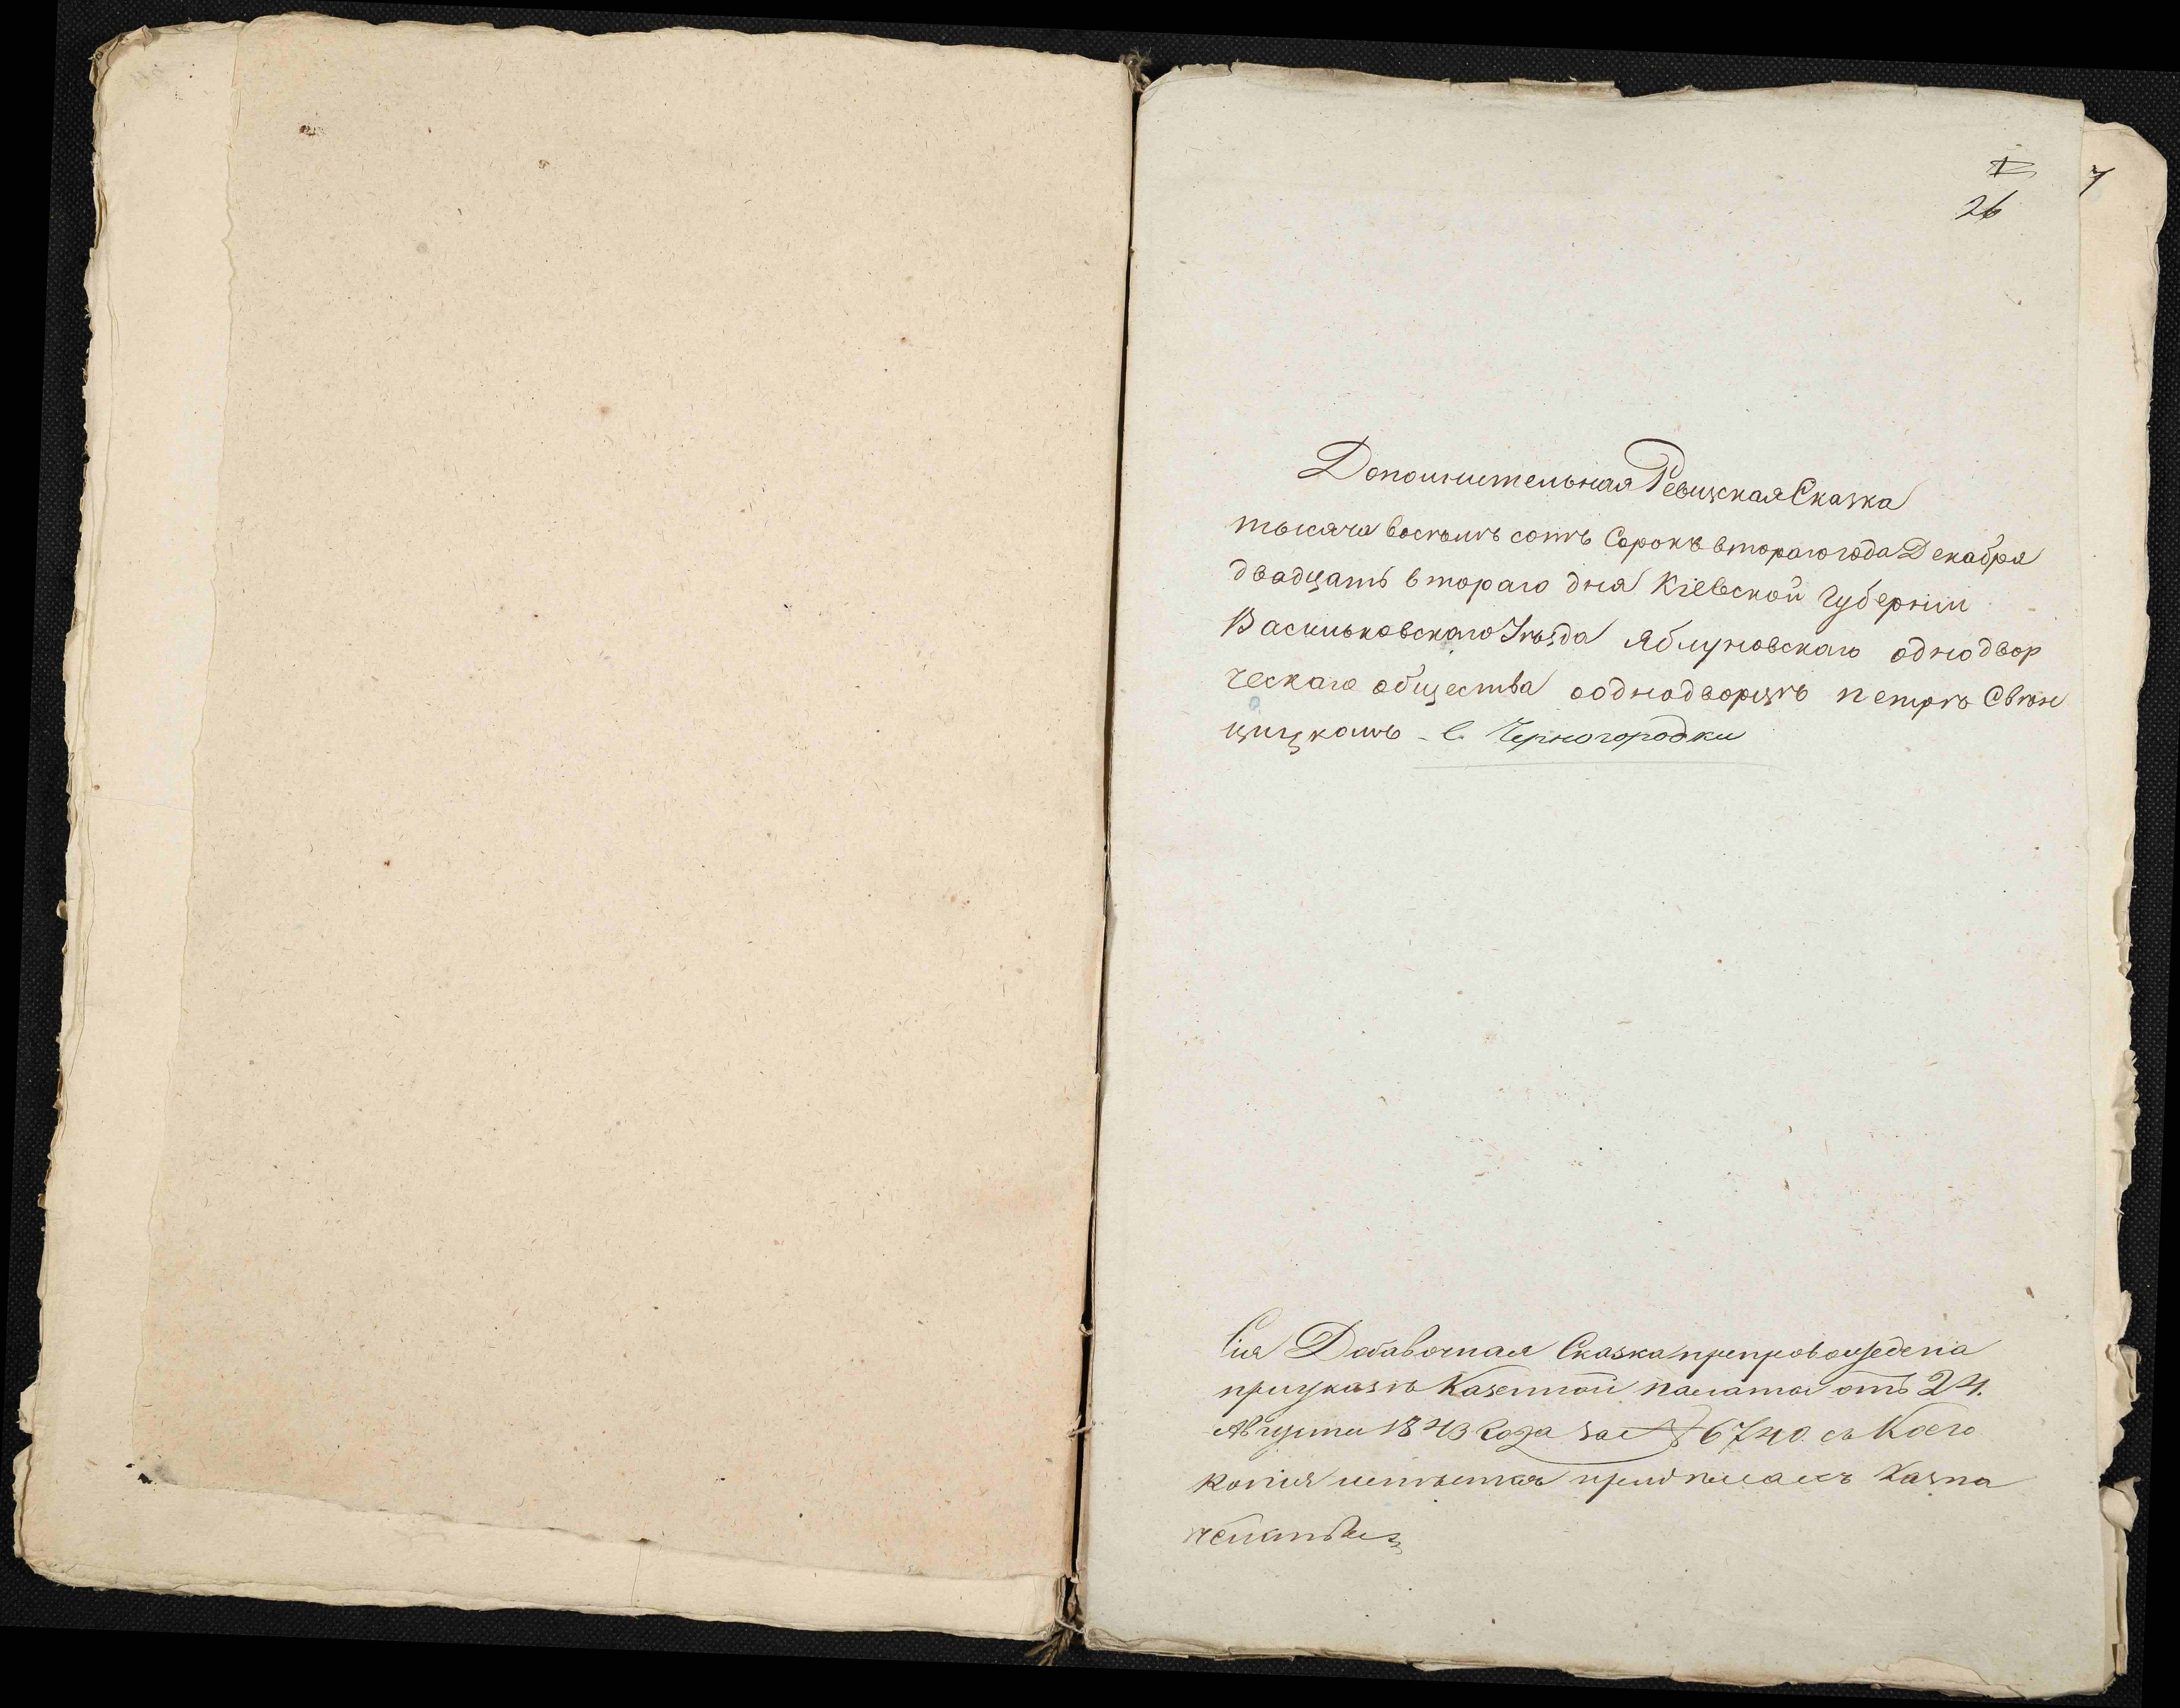 26
7
Дополнительная Ревизская Сказка
тысяча восѣмъ сотъ Сорокъ втораго года Декабря
двадцать втораго дня Кіевской Губерніи
Васильковскаго Уѣзда Яблуновскаго однодвор
ческаго общества ооднодворцѣ петрѣ Свѣн
цицкомъ - с. Черногородки
Сія Добавочная Сказка препровождена
приуказѣ Казенной палаты отъ 24.
Августа 1843 года за № 6740. съ Коего
копія
Казна